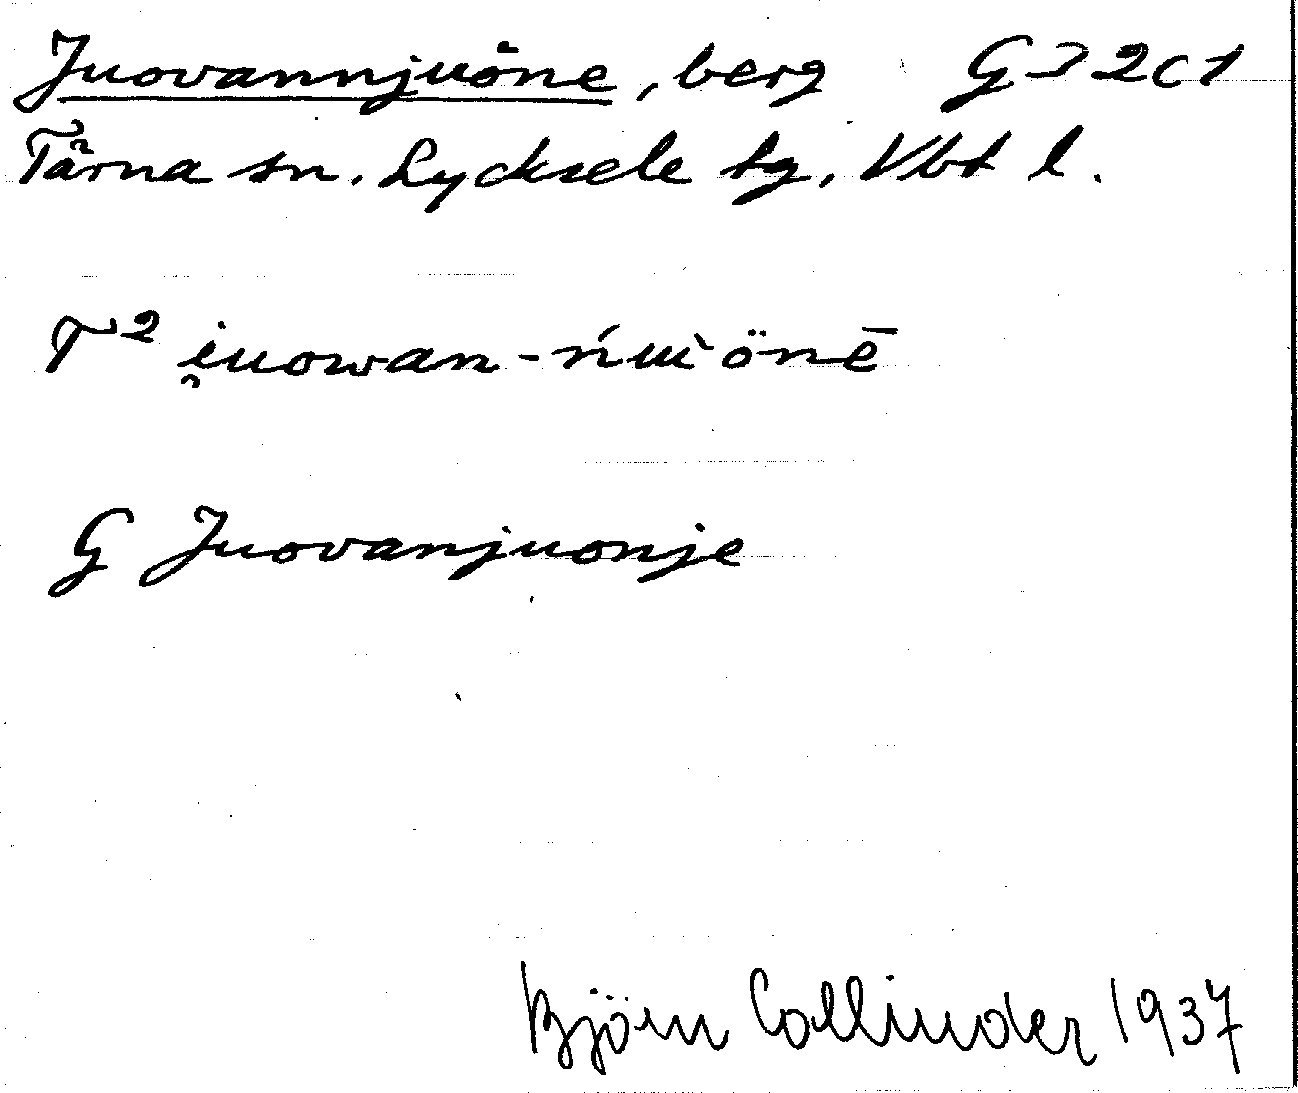 Juovannjuöne, berg G J 2 c 1
Tärna sn. Lycksele tg, Vbt l.
T² i̯uowan-ńuu̇̀önē
G Juovanjuonje
Björn Collinder 1937